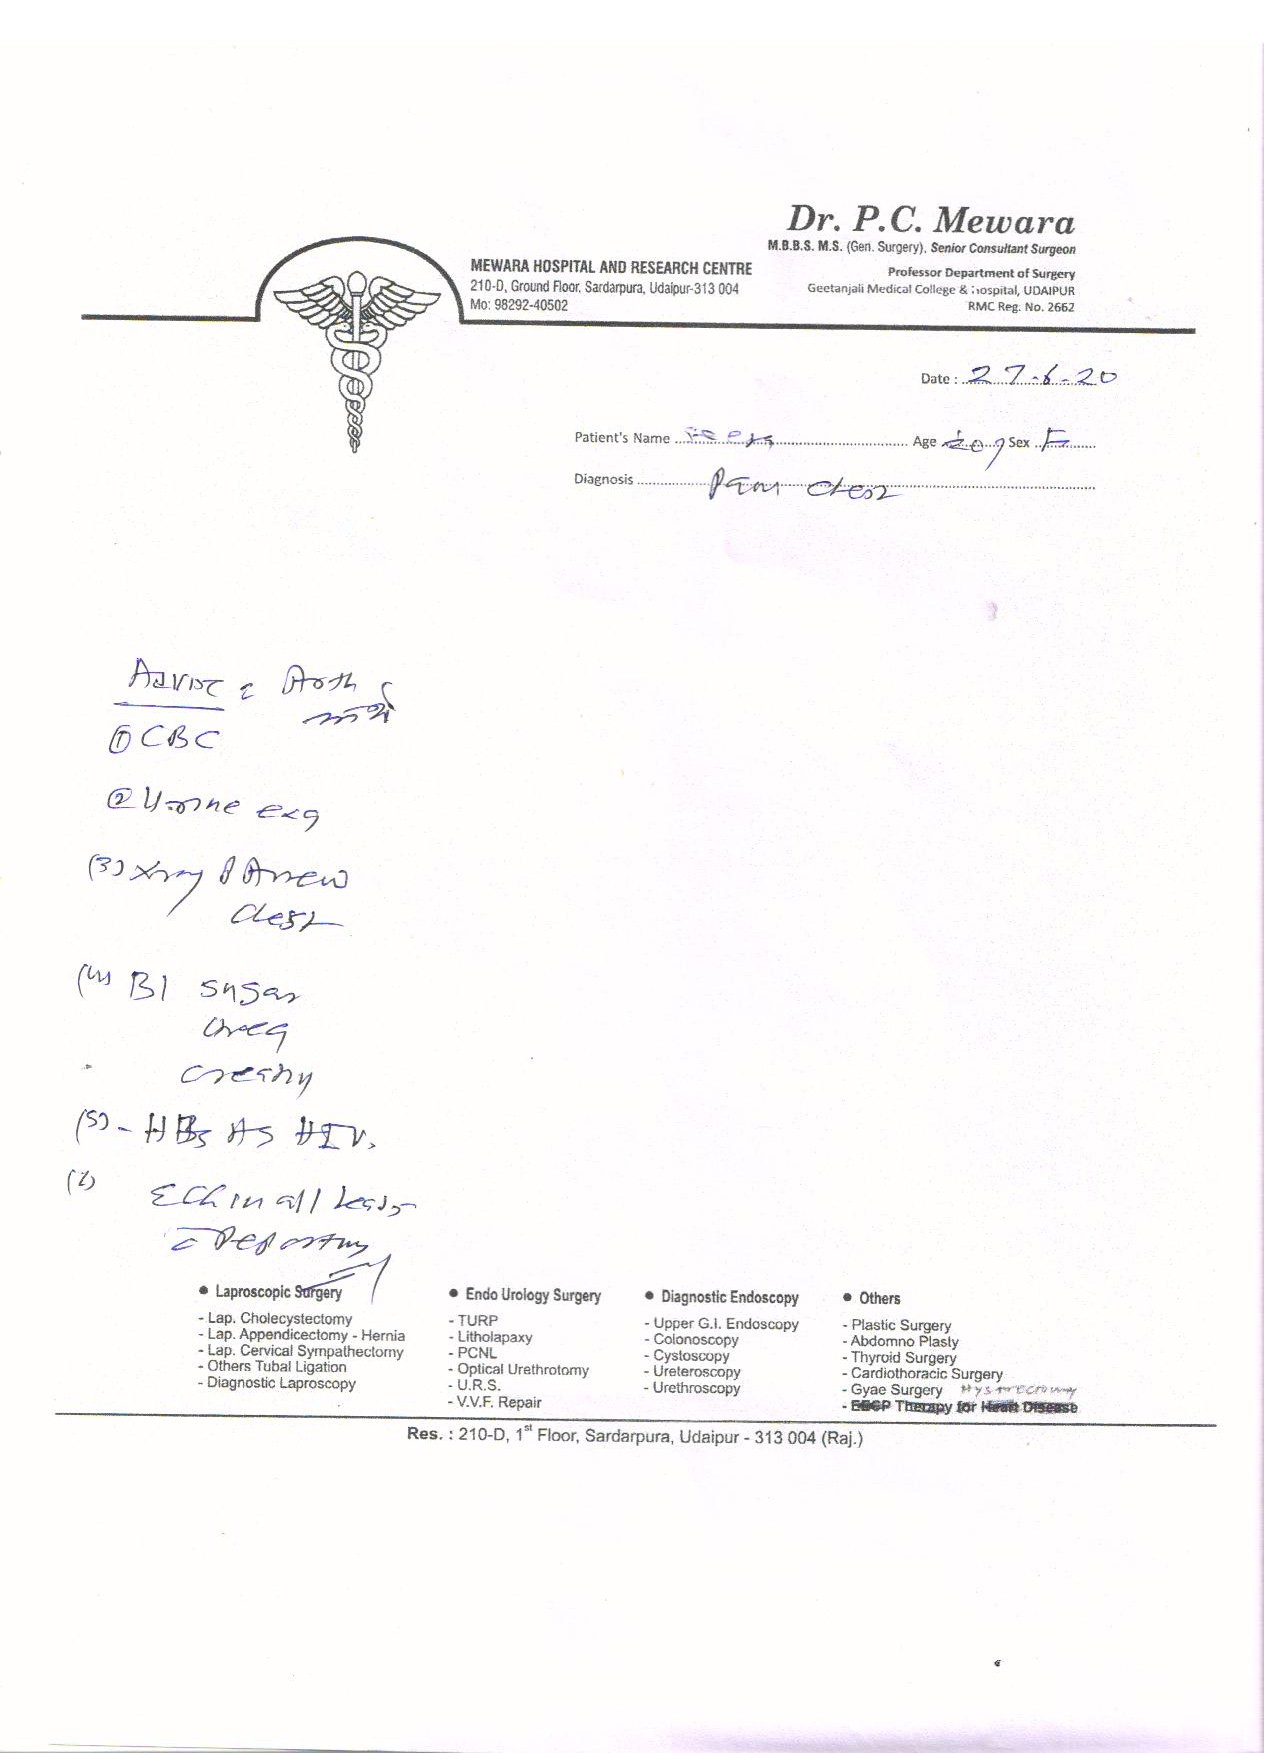 Dr. P.C. Mewara
M.B.B.S. M.S. (Gen. Surgery), Senior Consultant Surgeon
MEWARA HOSPITAL AND RESEARCH CENTRE
210-D, Ground Floor, Sardarpura, Udaipur-313 004
Mo: 98292-40502
Professor Department of Surgery
Geetanjali Medical College & Hospital, UDAIPUR
RMC Reg. No. 2662
Date : 27-6-20
Patient's Name Age Sex F
Diagnosis Pain Chest
Advise
① CBC
② Urine
(3) Xray PA view
Chest
(4) Bl sugar
urea
(5) - HBs Ag HIV.
ECG in all leads
Reporting
● Laproscopic Surgery
- Lap. Cholecystectomy
- Lap. Appendicectomy - Hernia
- Lap. Cervical Sympathectomy
- Others Tubal Ligation
- Diagnostic Laproscopy
● Endo Urology Surgery
- TURP
- Litholapaxy
- PCNL
- Optical Urethrotomy
- U.R.S.
- V.V.F. Repair
● Diagnostic Endoscopy
- Upper G.I. Endoscopy
- Colonoscopy
- Cystoscopy
- Ureteroscopy
- Urethroscopy
● Others
- Plastic Surgery
- Abdomno Plasty
- Thyroid Surgery
- Cardiothoracic Surgery
- Gyae Surgery
- EECP Therapy for Heart Disease
Res. : 210-D, 1st Floor, Sardarpura, Udaipur - 313 004 (Raj.)